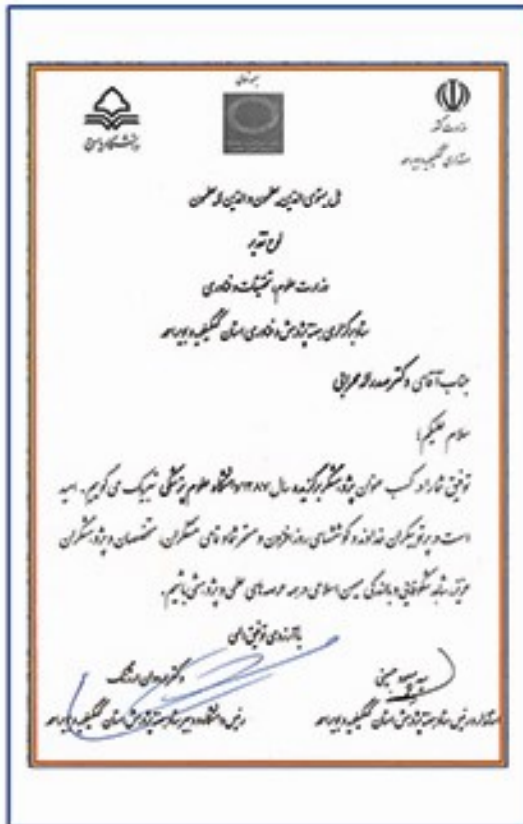 بسمه تعالی
وزارت کشور
استانداری کهگیلویه و بویراحمد
دانشگاه یاسوج
هل یستوی الذین یعلمون والذین لا یعلمون
لوح تقدیر
وزارت علوم، تحقیقات و فناوری
ستاد برگزاری هفته پژوهش و فناوری استان کهگیلویه و بویراحمد
جناب آقای دکتر
سلام علیکم؛
توفیق شما را در کسب عنوان پژوهشگر برگزیده سال ۱۳۸۷ دانشگاه علوم پزشکی تبریک می گوییم. امید
است در پرتو بیکران خداوند و کوششهای روزافزون و مستمر شما و تمامی متخصصان و پژوهشگران
عزیز، شاهد شکوفایی و بالندگی میهن اسلامی در همه عرصه های علمی و پژوهشی باشیم.
با آرزوی توفیق الهی
دکتر
سید مسعود حسینی
رئیس دانشگاه و دبیر ستاد هفته پژوهش استان کهگیلویه و بویراحمد
استاندار و رئیس ستاد هفته پژوهش استان کهگیلویه و بویراحمد